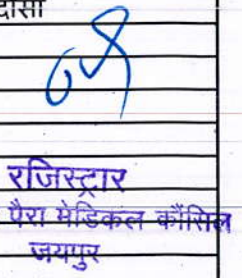 रजिस्ट्रार
पैरा मेडिकल कौंसिल
जयपुर